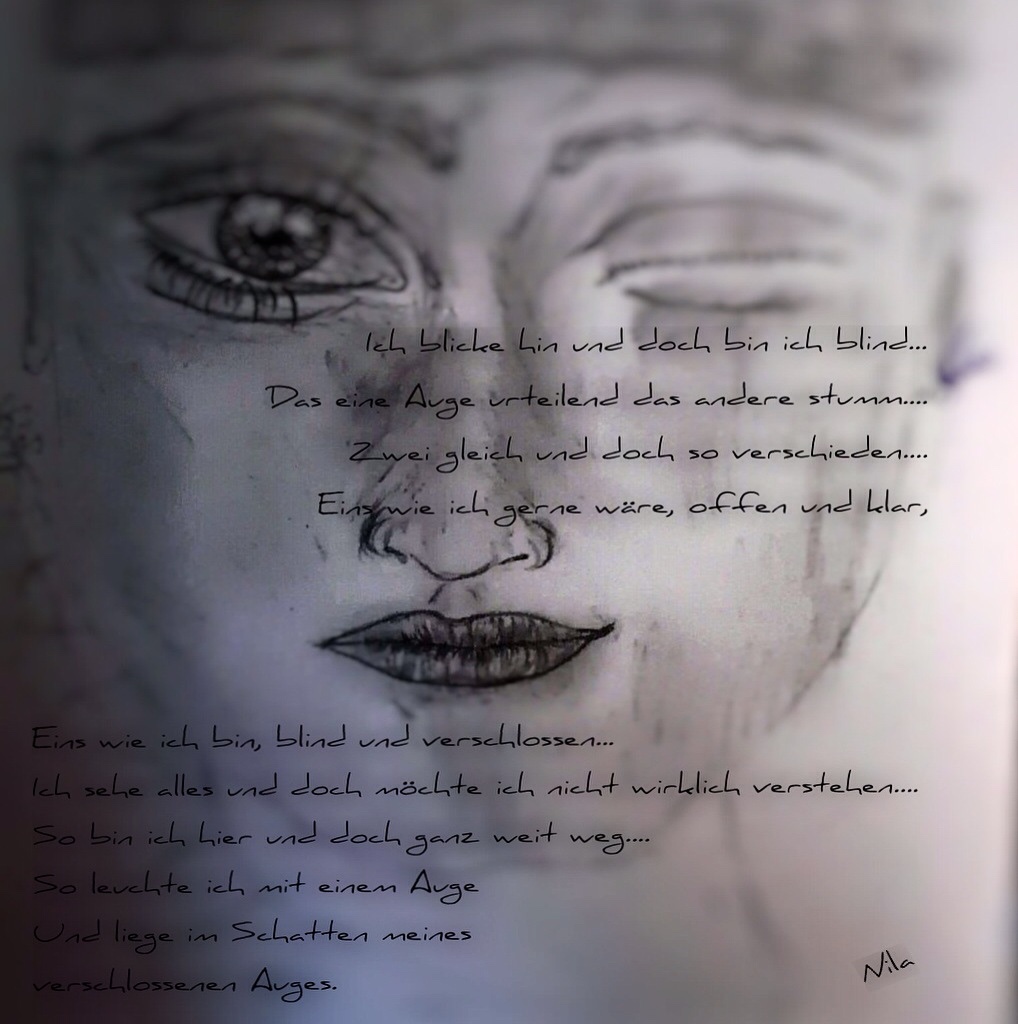 Ich blicke hin und doch bin ich blind...
Das eine Auge urteilend das andere stumm....
Zwei gleich und doch so verschieden....
Eins wie ich gerne wäre, offen und klar,
Eins wie ich bin, blind und verschlossen...
Ich sehe alles und doch möchte ich nicht wirklich verstehen....
So bin ich hier und doch ganz weit weg....
So leuchte ich mit einem Auge
Und liege im Schatten meines
verschlossenen Auges.
Nila